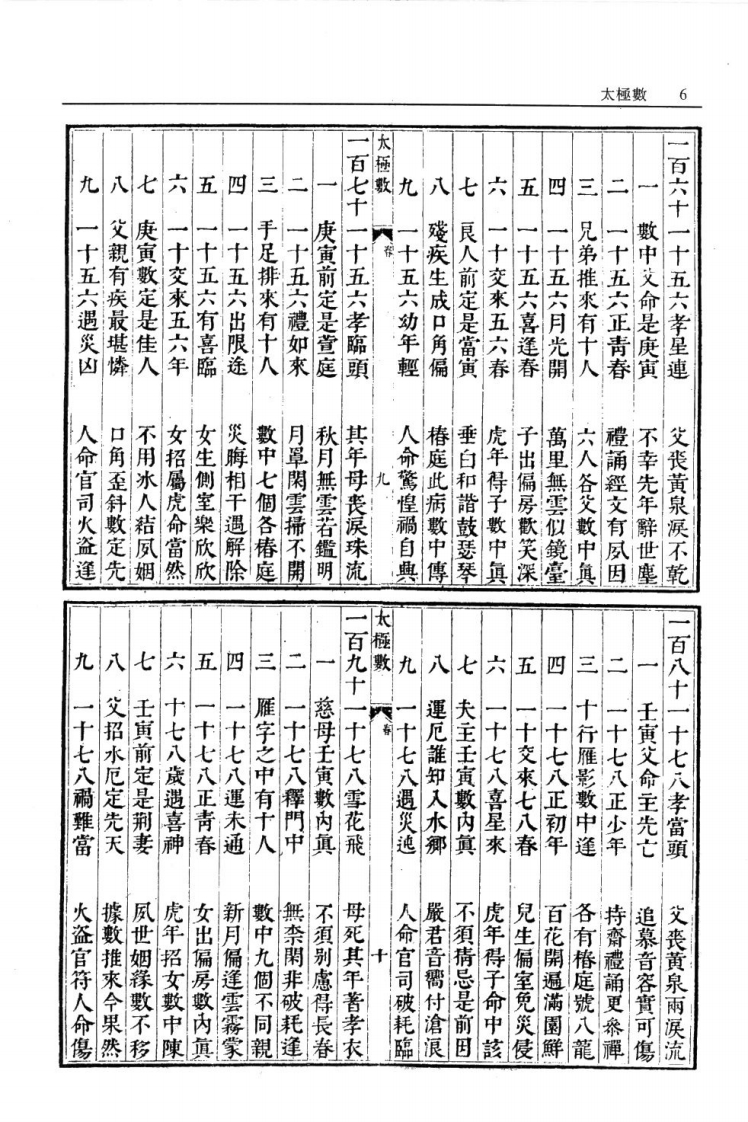 太極數 6
一百六十 一十五六孝星連 父喪黃泉淚不乾
一 數中父命是庚寅 不幸先年辭世塵
二 一十五六正青春 禮誦經文有夙因
三 兄弟推來有十人 六人各父數中眞
四 一十五六月光開 萬里無雲似鏡臺
五 一十五六喜逢春 子出偏房歡笑深
六 一十交來五六春 虎年得子數中眞
七 良人前定是當寅 垂白和諧鼓瑟琴
八 殘疾生成口角偏 椿庭此病數中傳
九 一十五六幼年輕 人命驚惶禍自典
太極數 卷 九
一百七十 一十五六孝臨頭 其年母喪淚珠流
一 庚寅前定是萱庭 秋月無雲若鑑明
二 一十五六禮如來 月罩閑雲掃不開
三 手足排來有十人 數中七個各椿庭
四 一十五六出限途 災晦相干遇解除
五 一十五六有喜臨 女生側室樂欣欣
六 一十交來五六年 女招屬虎命當然
七 庚寅數定是佳人 不用冰人結夙姻
八 父親有疾最堪憐 口角歪斜數定先
九 一十五六遇災凶 人命官司火盜逢
一百八十 一十七八孝當頭 父喪黃泉兩淚流
一 壬寅父命主先亡 追慕音容實可傷
二 一十七八正少年 持齋禮誦更參禪
三 十行雁影數中逢 各有椿庭號八龍
四 一十七八正初年 百花開遍滿園鮮
五 一十交來七八春 兒生偏室免災侵
六 一十七八喜星來 虎年得子命中該
七 夫主壬寅數內眞 不須猜忌是前因
八 運厄誰知入水鄉 嚴君音嚮付滄浪
九 一十七八遇災迍 人命官司破耗臨
太極數 卷 十
一百九十 一十七八雪花飛 母死其年著孝衣
一 慈母壬寅數內眞 不須別慮得長春
二 一十七八釋門中 無柰閑非破耗逢
三 雁字之中有十人 數中九個不同親
四 一十七八運未通 新月偏逢雲霧蒙
五 一十七八正青春 女出偏房數內眞
六 十七八歲遇喜神 虎年招女數中陳
七 壬寅前定是荊妻 夙世姻緣數不移
八 父招水厄定先天 據數推來今果然
九 一十七八禍難當 火盜官符人命傷